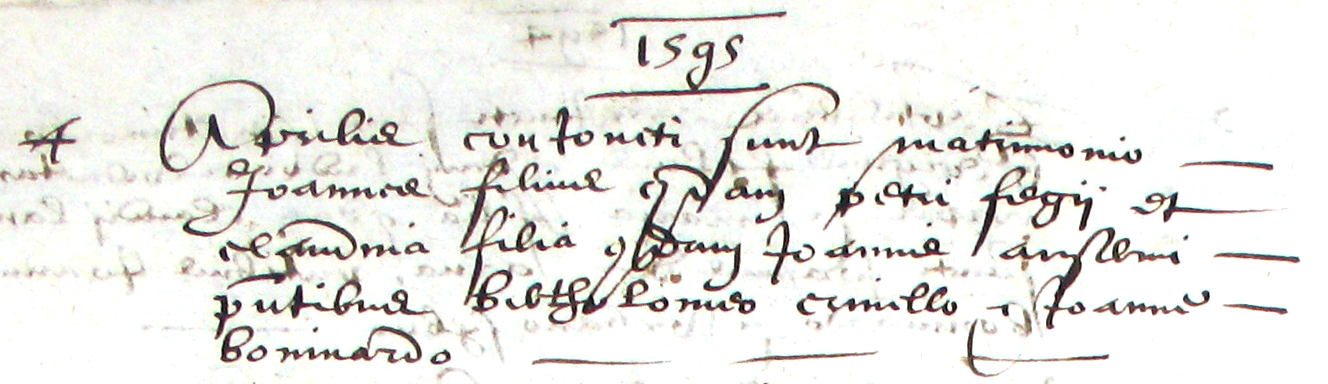 1595
4 Aprilis coniuncti sunt matrimonio
Joannes filius qdam petri fegij et
claudina filia qdam Joannis anselmi
pntibus barthelomeo crivello e Joanne
boninardo